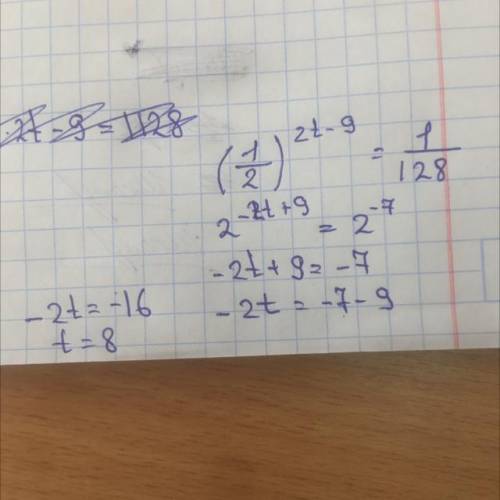 2t - 9 = 1128
(1/2)^{2t-9} = 1/128
2^{-2t+9} = 2^{-7}
-2t + 9 = -7
-2t = -7 - 9
-2t = -16
t = 8